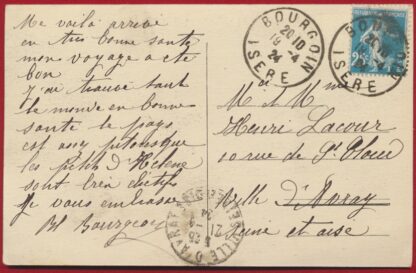 Me voilà arrivé
en très bonne santé
mon voyage a été
bon j'ai trouvé tout
le monde en bonne
santé le pays
est assez pittoresque
les petits d'Hélène
sont bien
je vous embrasse
Bl Bourgeois
BOURGOIN
20 10
19-4
24
ISERE
M et Mme
Henri Lacour
10 rue de St Cloud
Ville d'Avray
Seine et oise
VILLE D'AVRAY
21